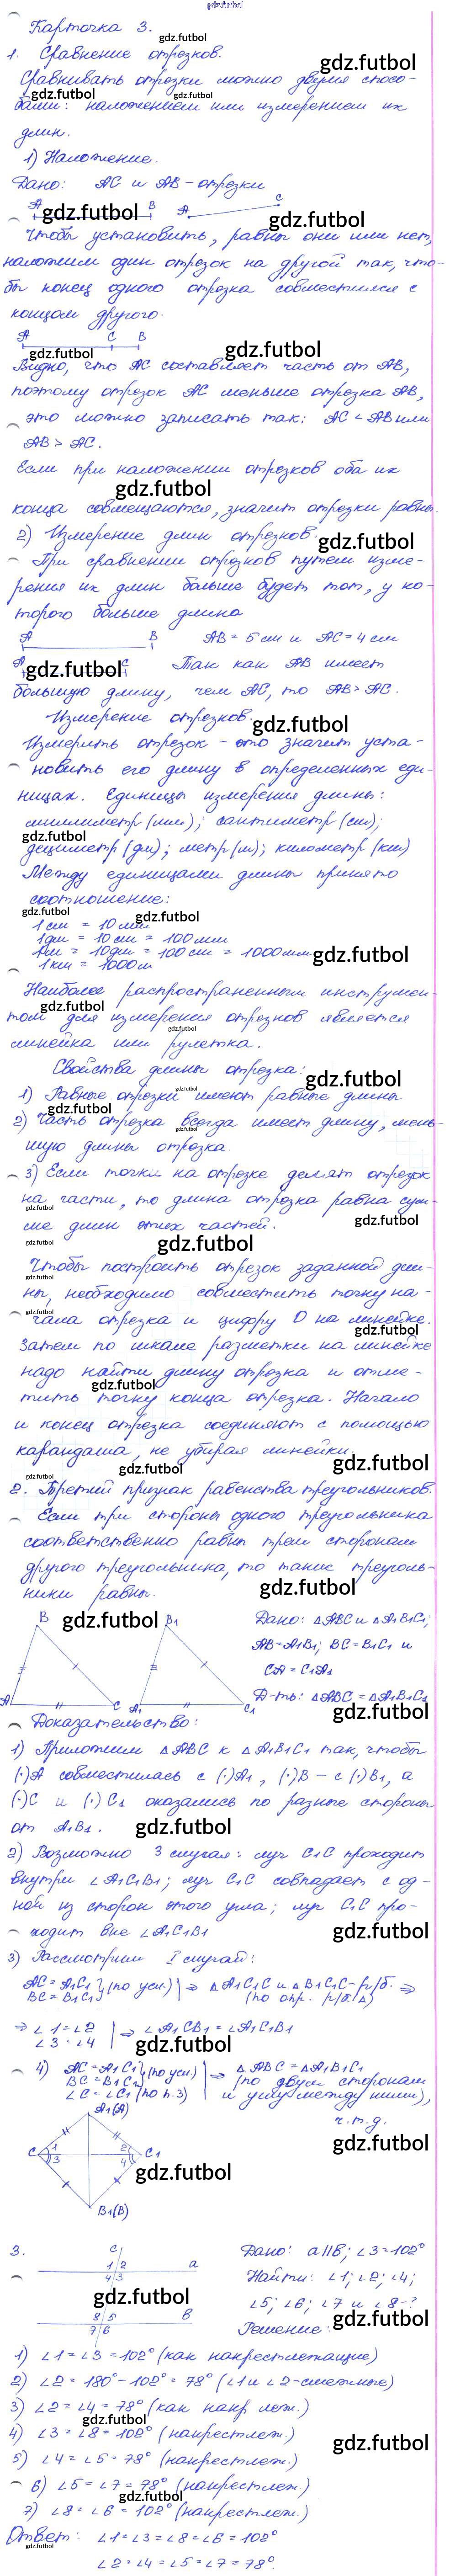 gdz.futbol
Карточка 3.
1. Сравнение отрезков.
Сравнивать отрезки можно двумя спосо-
бами: наложением или измерением их
длин.
1) Наложение.
Дано: AC и AB - отрезки
A B A C
Чтобы установить, равны они или нет,
наложим один отрезок на другой так, что-
бы конец одного отрезка совместился с
концом другого.
A C B
Видно, что AC составляет часть от AB,
поэтому отрезок AC меньше отрезка AB,
это можно записать так: AC < AB или
AB > AC.
Если при наложении отрезков оба их
конца совмещаются, значит отрезки равны.
2) Измерение длин отрезков.
При сравнении отрезков путем изме-
рения их длин больше будет тот, у ко-
торого больше длина
A B AB = 5 см и AC = 4 см
A C Так как AB имеет
большую длину, чем AC, то AB > AC.
Измерение отрезков.
Измерить отрезок - это значит уста-
новить его длину в определенных еди-
ницах. Единицы измерения длины:
миллиметр (мм); сантиметр (см);
дециметр (дм); метр (м); километр (км)
Между единицами длины принято
соотношение:
1 см = 10 мм
1 дм = 10 см = 100 мм
1 м = 10 дм = 100 см = 1000 мм
1 км = 1000 м
Наиболее распространенным инструмен-
том для измерения отрезков является
линейка или рулетка.
Свойства длины отрезка:
1) Равные отрезки имеют равные длины
2) Часть отрезка всегда имеет длину, мень-
шую длины отрезка.
3) Если точки на отрезке делят отрезок
на части, то длина отрезка равна сум-
ме длин этих частей.
Чтобы построить отрезок заданной дли-
ны, необходимо совместить точку на-
чала отрезка и цифру 0 на линейке.
Затем по шкале разметки на линейке
надо найти длину отрезка и отме-
тить точку конца отрезка. Начало
и конец отрезка соединяют с помощью
карандаша, не убирая линейки.
2. Третий признак равенства треугольников.
Если три стороны одного треугольника
соответственно равны трем сторонам
другого треугольника, то такие треуголь-
ники равны.
B B1 Дано: △ABC и △A1B1C1;
AB = A1B1; BC = B1C1 и
CA = C1A1
A C A1 C1 Д-ть: △ABC = △A1B1C1
Доказательство:
1) Приложим △ABC к △A1B1C1 так, чтобы
(·)A совместилась с (·)A1, (·)B - с (·)B1, а
(·)C и (·)C1 оказались по разные стороны
от A1B1.
2) Возможно 3 случая: луч C1C проходит
внутри ∠A1C1B1; луч C1C совпадает с од-
ной из сторон этого угла; луч C1C про-
ходит вне ∠A1C1B1
3) Рассмотрим I случай:
AC = A1C1 } (по усл.) | ⇒ △A1C1C и △B1C1C - р/б. ⇒
BC = B1C1 (по опр. р/б △)
⇒ ∠1 = ∠2 | ⇒ ∠A1CB1 = ∠A1C1B1
∠3 = ∠4
4) AC = A1C1 } (по усл) | ⇒ △ABC = △A1B1C1
BC = B1C1 (по двум сторонам
∠C = ∠C1 (по п.3) и углу между ними),
ч.т.д.
A1(A)
C 1 3 2 4 C1
B1(B)
3. c Дано: a∥b; ∠3 = 102°
1 2 a Найти: ∠1; ∠2; ∠4;
4 3 ∠5; ∠6; ∠7 и ∠8 - ?
8 5 b
7 6 Решение:
1) ∠1 = ∠3 = 102° (как накрестлежащие)
2) ∠2 = 180° - 102° = 78° (∠1 и ∠2 - смежные)
3) ∠2 = ∠4 = 78° (как накр. леж.)
4) ∠3 = ∠8 = 102° (накрестлеж.)
5) ∠4 = ∠5 = 78° (накрестлеж.)
6) ∠5 = ∠7 = 78° (накрестлеж.)
7) ∠8 = ∠6 = 102° (накрестлеж.)
Ответ: ∠1 = ∠3 = ∠8 = ∠6 = 102°
∠2 = ∠4 = ∠5 = ∠7 = 78°.